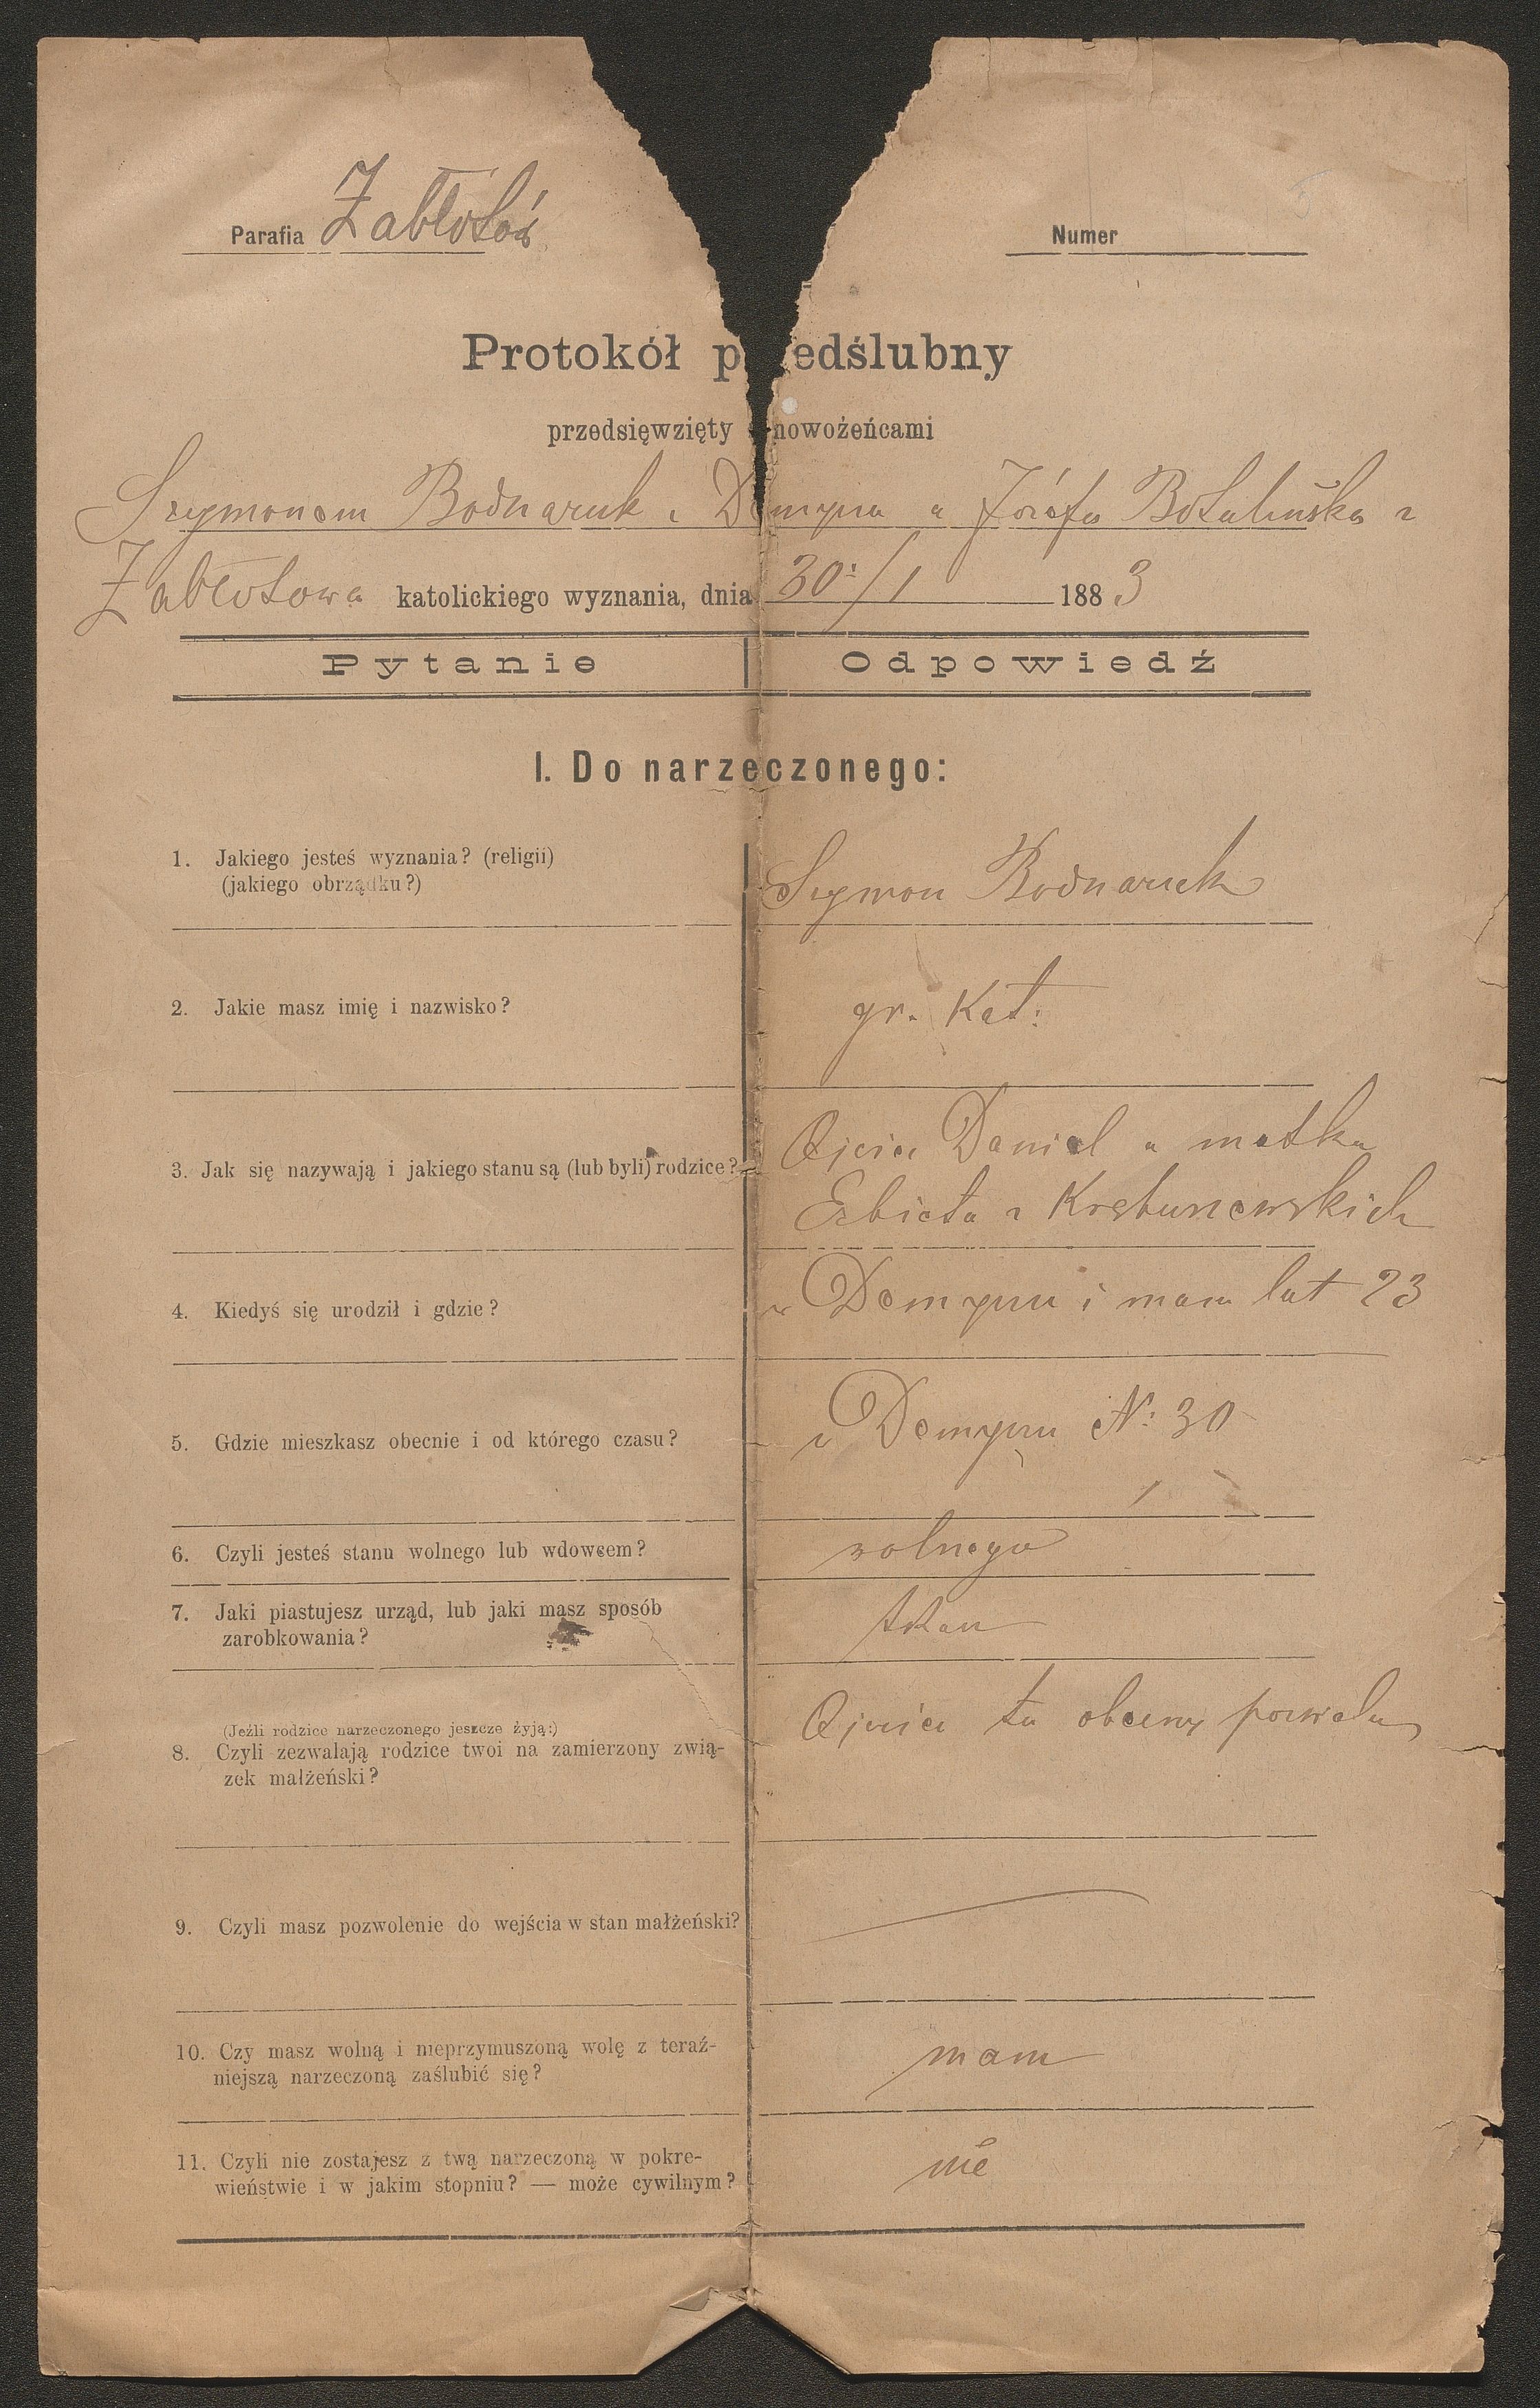 Parafia Zabłotów
Numer
Protokół p edślubny
przedsięwzięty nowożeńcami
Szymonem Bodnaruk z Demycza a Józefa
Zabłotowa katolickiego wyznania, dnia 30:/1 1883
Pytanie Odpowiedź
I. Do narzeczonego:
1. Jakiego jesteś wyznania? (religii)
(jakiego obrządku?)
Szymon Bodnaruk
2. Jakie masz imię i nazwisko?
gr. Kat:
3. Jak się nazywają i jakiego stanu są (lub byli) rodzice?
Ojciec Daniel a matka
Elżbieta z
4. Kiedyś się urodził i gdzie?
w Demyczu i mam lat 23
5. Gdzie mieszkasz obecnie i od którego czasu?
w Demyczu N: 30
6. Czyli jesteś stanu wolnego lub wdowcem?
wolnego
7. Jaki piastujesz urząd, lub jaki masz sposób
zarobkowania?
(Jeźli rodzice narzeczonego jeszcze żyją:)
8. Czyli zezwalają rodzice twoi na zamierzony zwią-
zek małżeński?
Ojciec tu obecny pozwala
9. Czyli masz pozwolenie do wejścia w stan małżeński?
10. Czy masz wolną i nieprzymuszoną wolę z teraź-
niejszą narzeczoną zaślubić się?
mam
11. Czyli nie zostajesz z twą narzeczoną w pokre-
wieństwie i w jakim stopniu? — może cywilnym?
nie